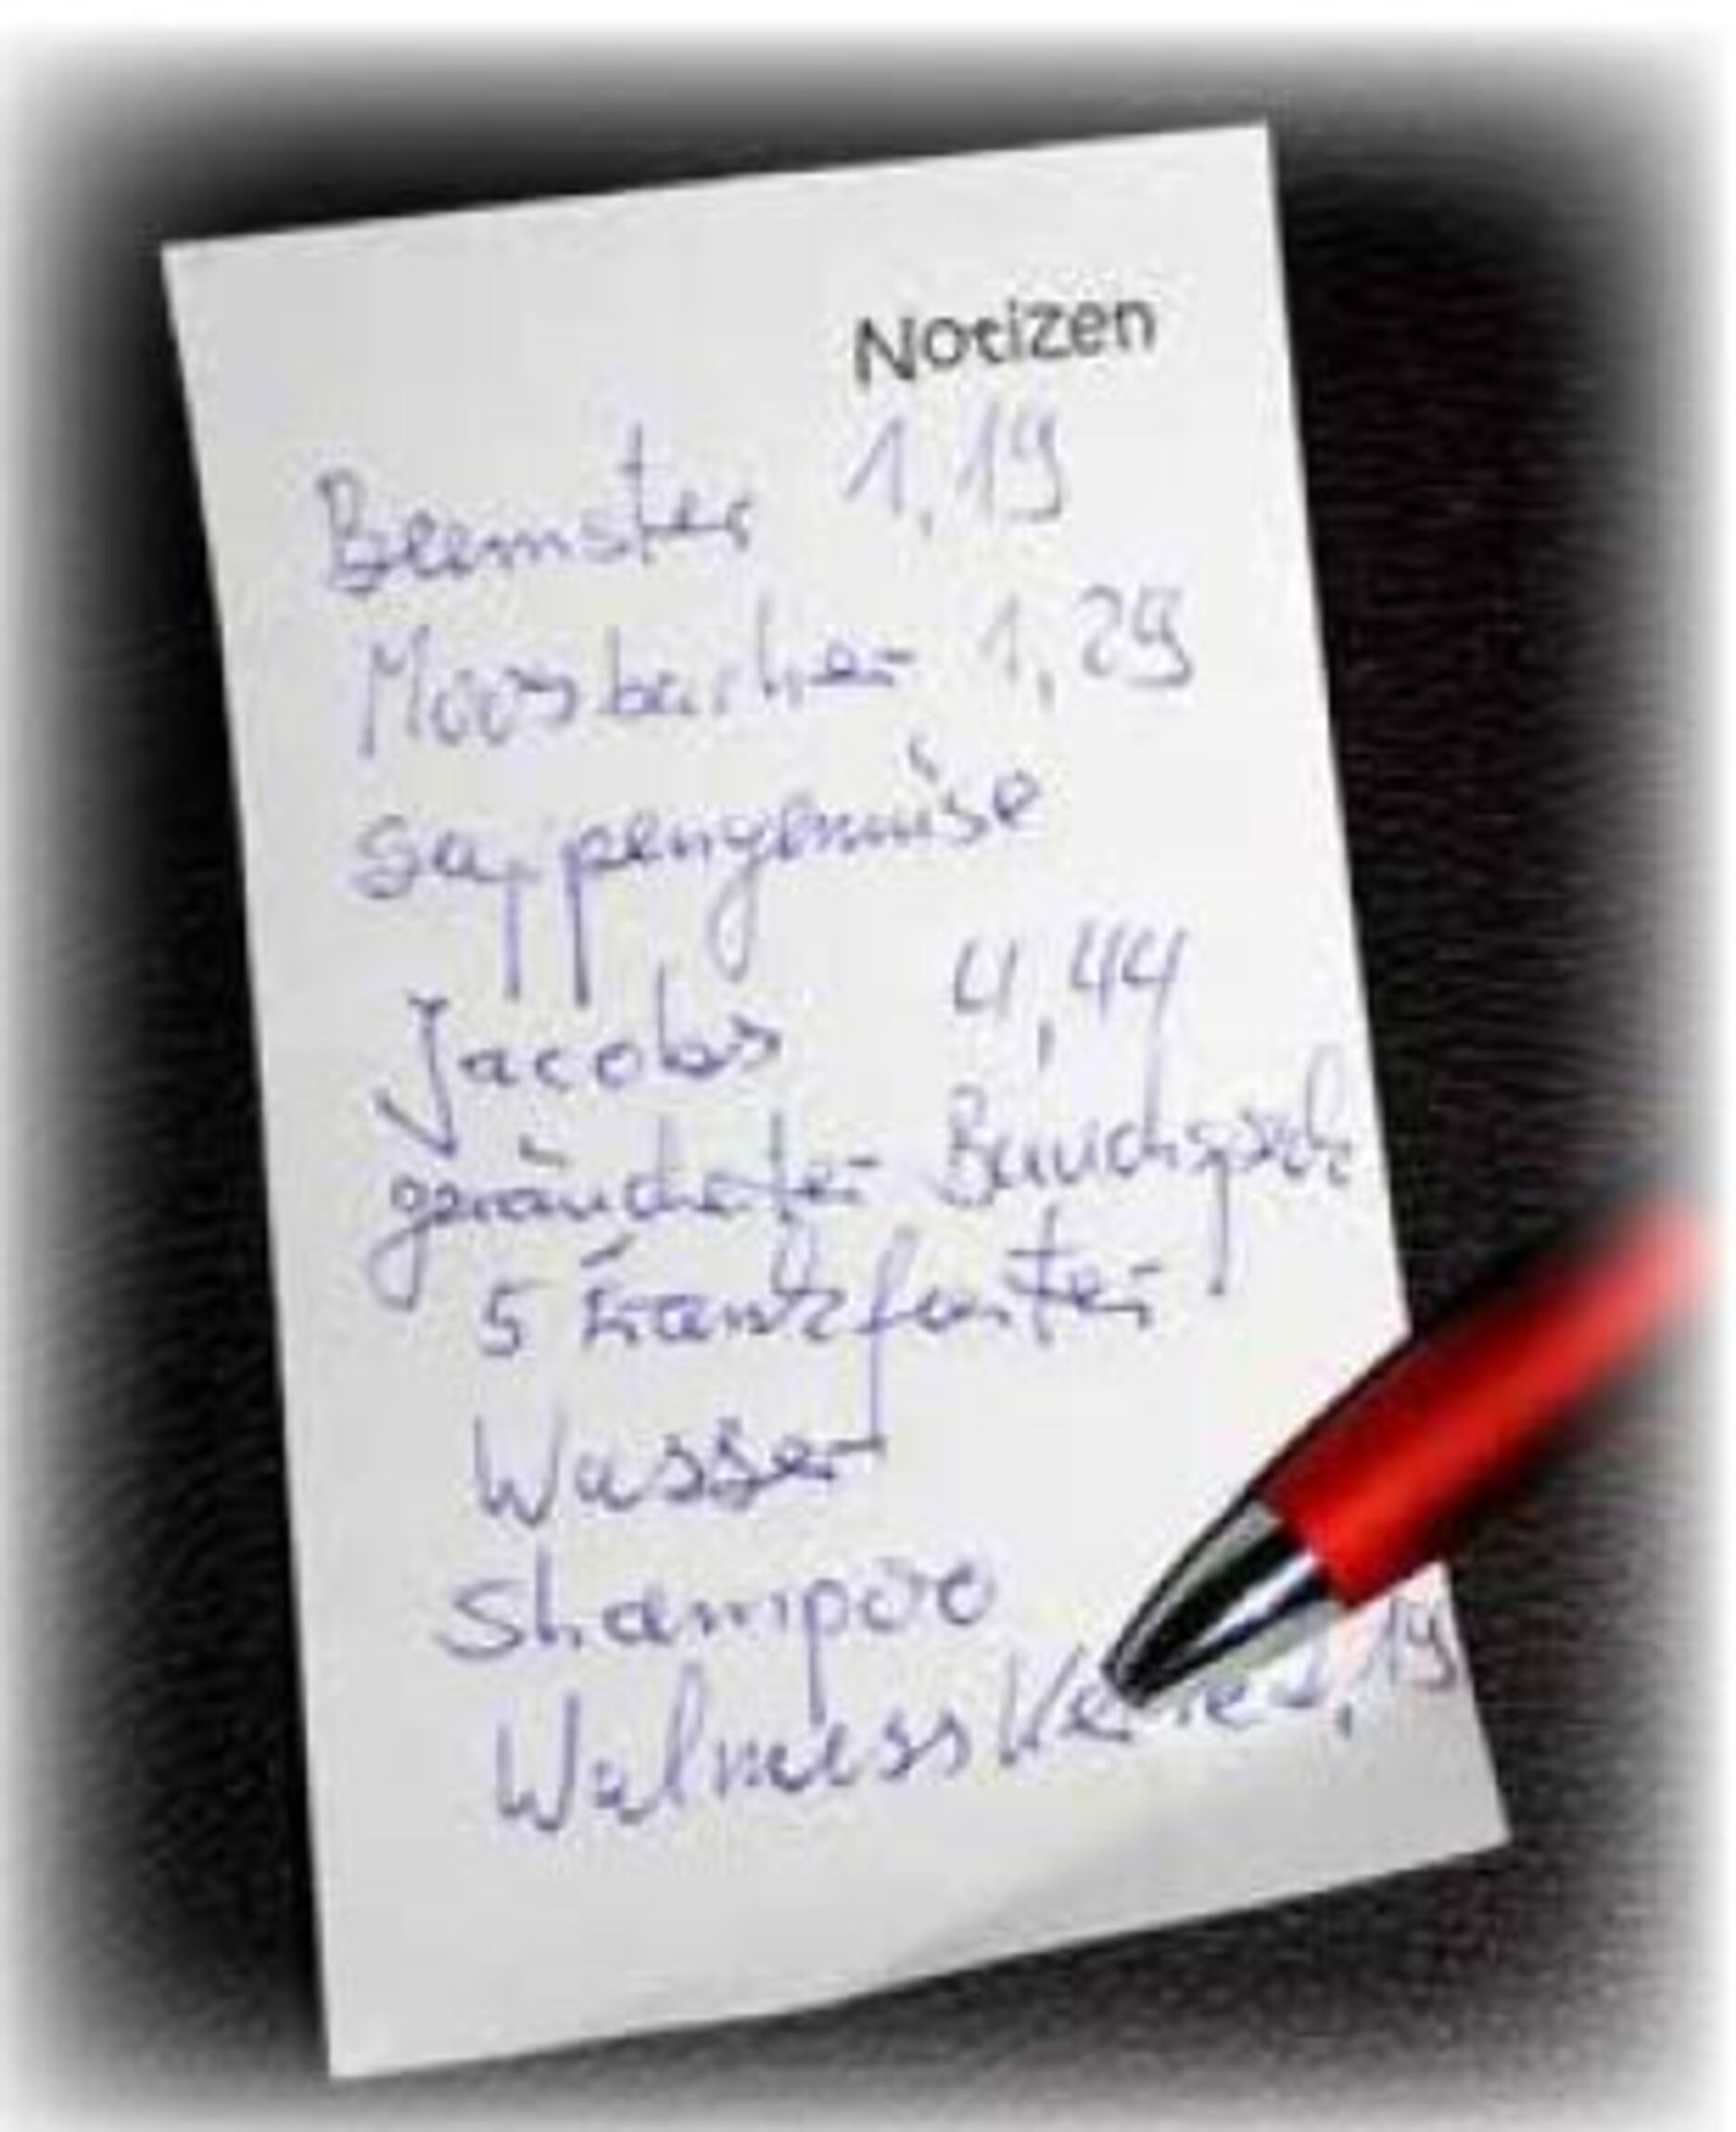 Notizen
Beemster 1,19
Moosbacher 1,29
Suppengemüse
Jacobs 4,44
geräucherter Bauchspeck
5 Frankfurter
Wasser
Shampoo
Walness ,19